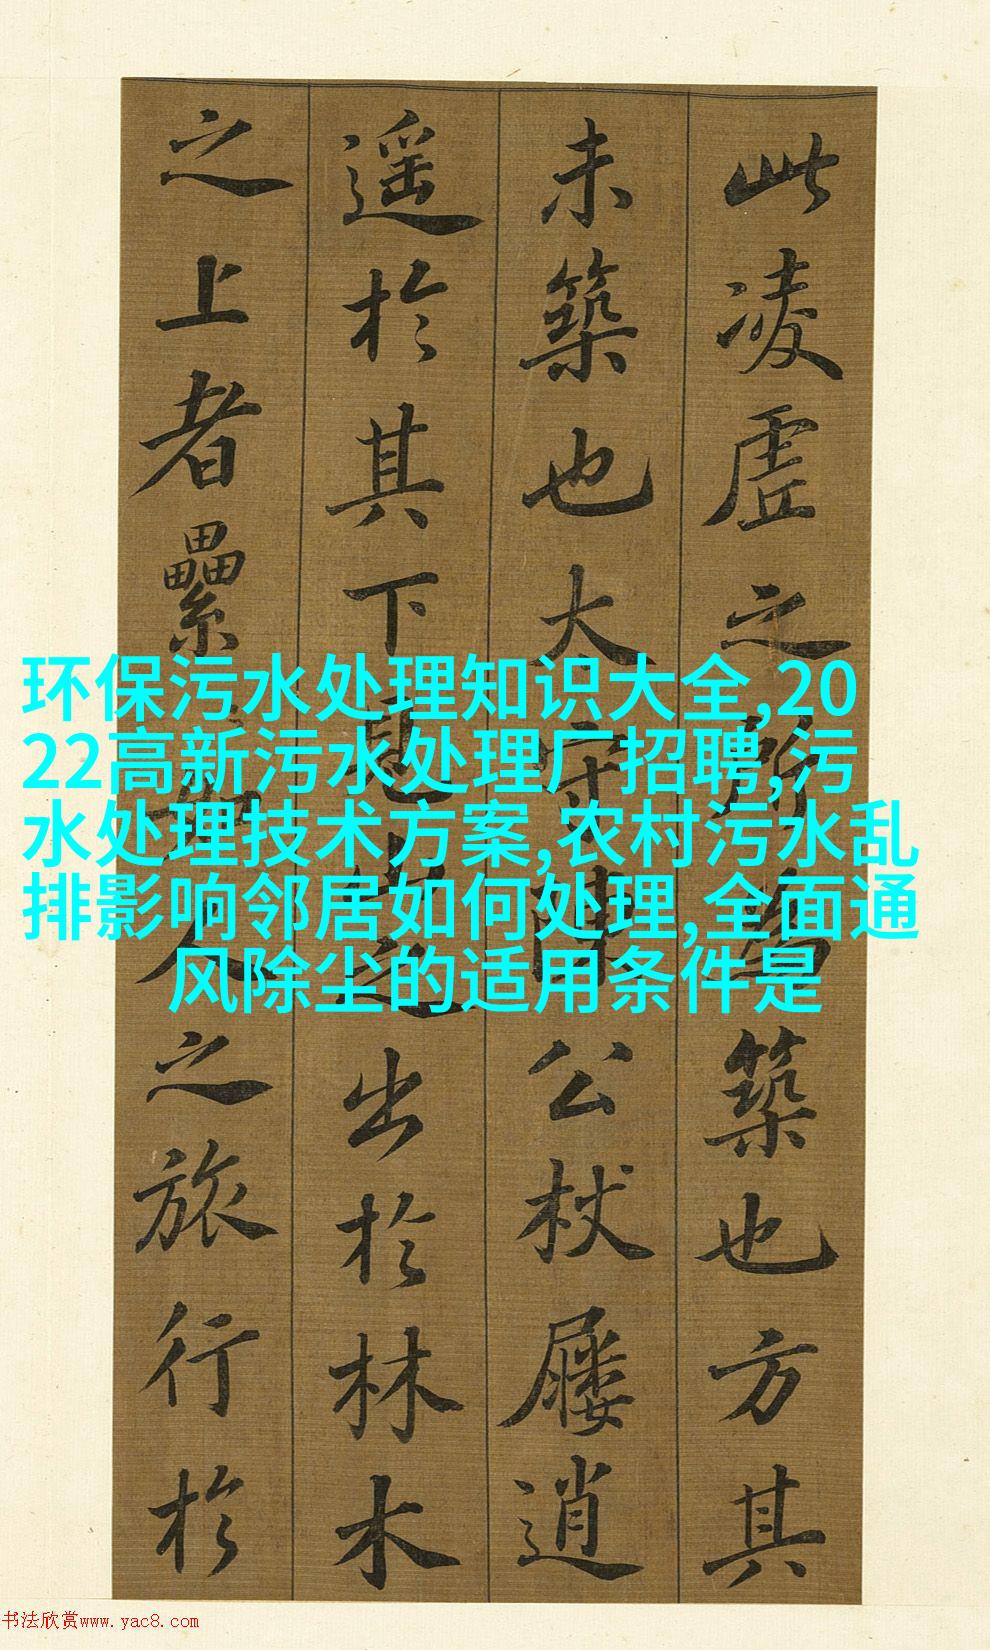 此凌虛之所為築也方其
未築也太守陳公杖屨逍
遥於其下見山之出於林木
之上者纍如人之旅行於
环保污水处理知识大全,20
22高新污水处理厂招聘,污
水处理技术方案,农村污水乱
排影响邻居如何处理,全面通
风除尘的适用条件是
书法欣赏www.yac8.com